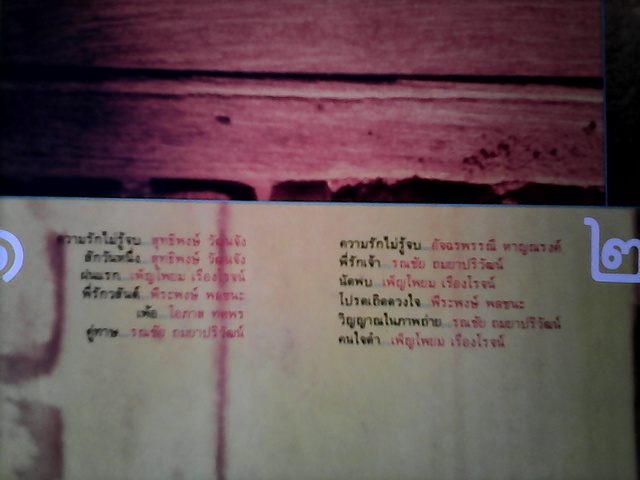 ๑
ความรักไม่รู้จบ...สุทธิพงษ์ วัฒนจัง
สักวันหนึ่ง...สุทธิพงษ์ วัฒนจัง
ฝนแรก...เพ็ญโพยม เรืองโรจน์
พี่รักวสันต์...พีระพงษ์ พลชนะ
เพ้อ...โอภาส ทศพร
คู่ทาษ...รณชัย ถมยาปริวัฒน์
๒
ความรักไม่รู้จบ...อัจฉรพรรณี หาญณรงค์
พี่รักเจ้า...รณชัย ถมยาปริวัฒน์
นัดพบ...เพ็ญโพยม เรืองโรจน์
โปรดเถิดดวงใจ...พีระพงษ์ พลชนะ
วิญญาณในภาพถ่าย...รณชัย ถมยาปริวัฒน์
คนใจดำ...เพ็ญโพยม เรืองโรจน์